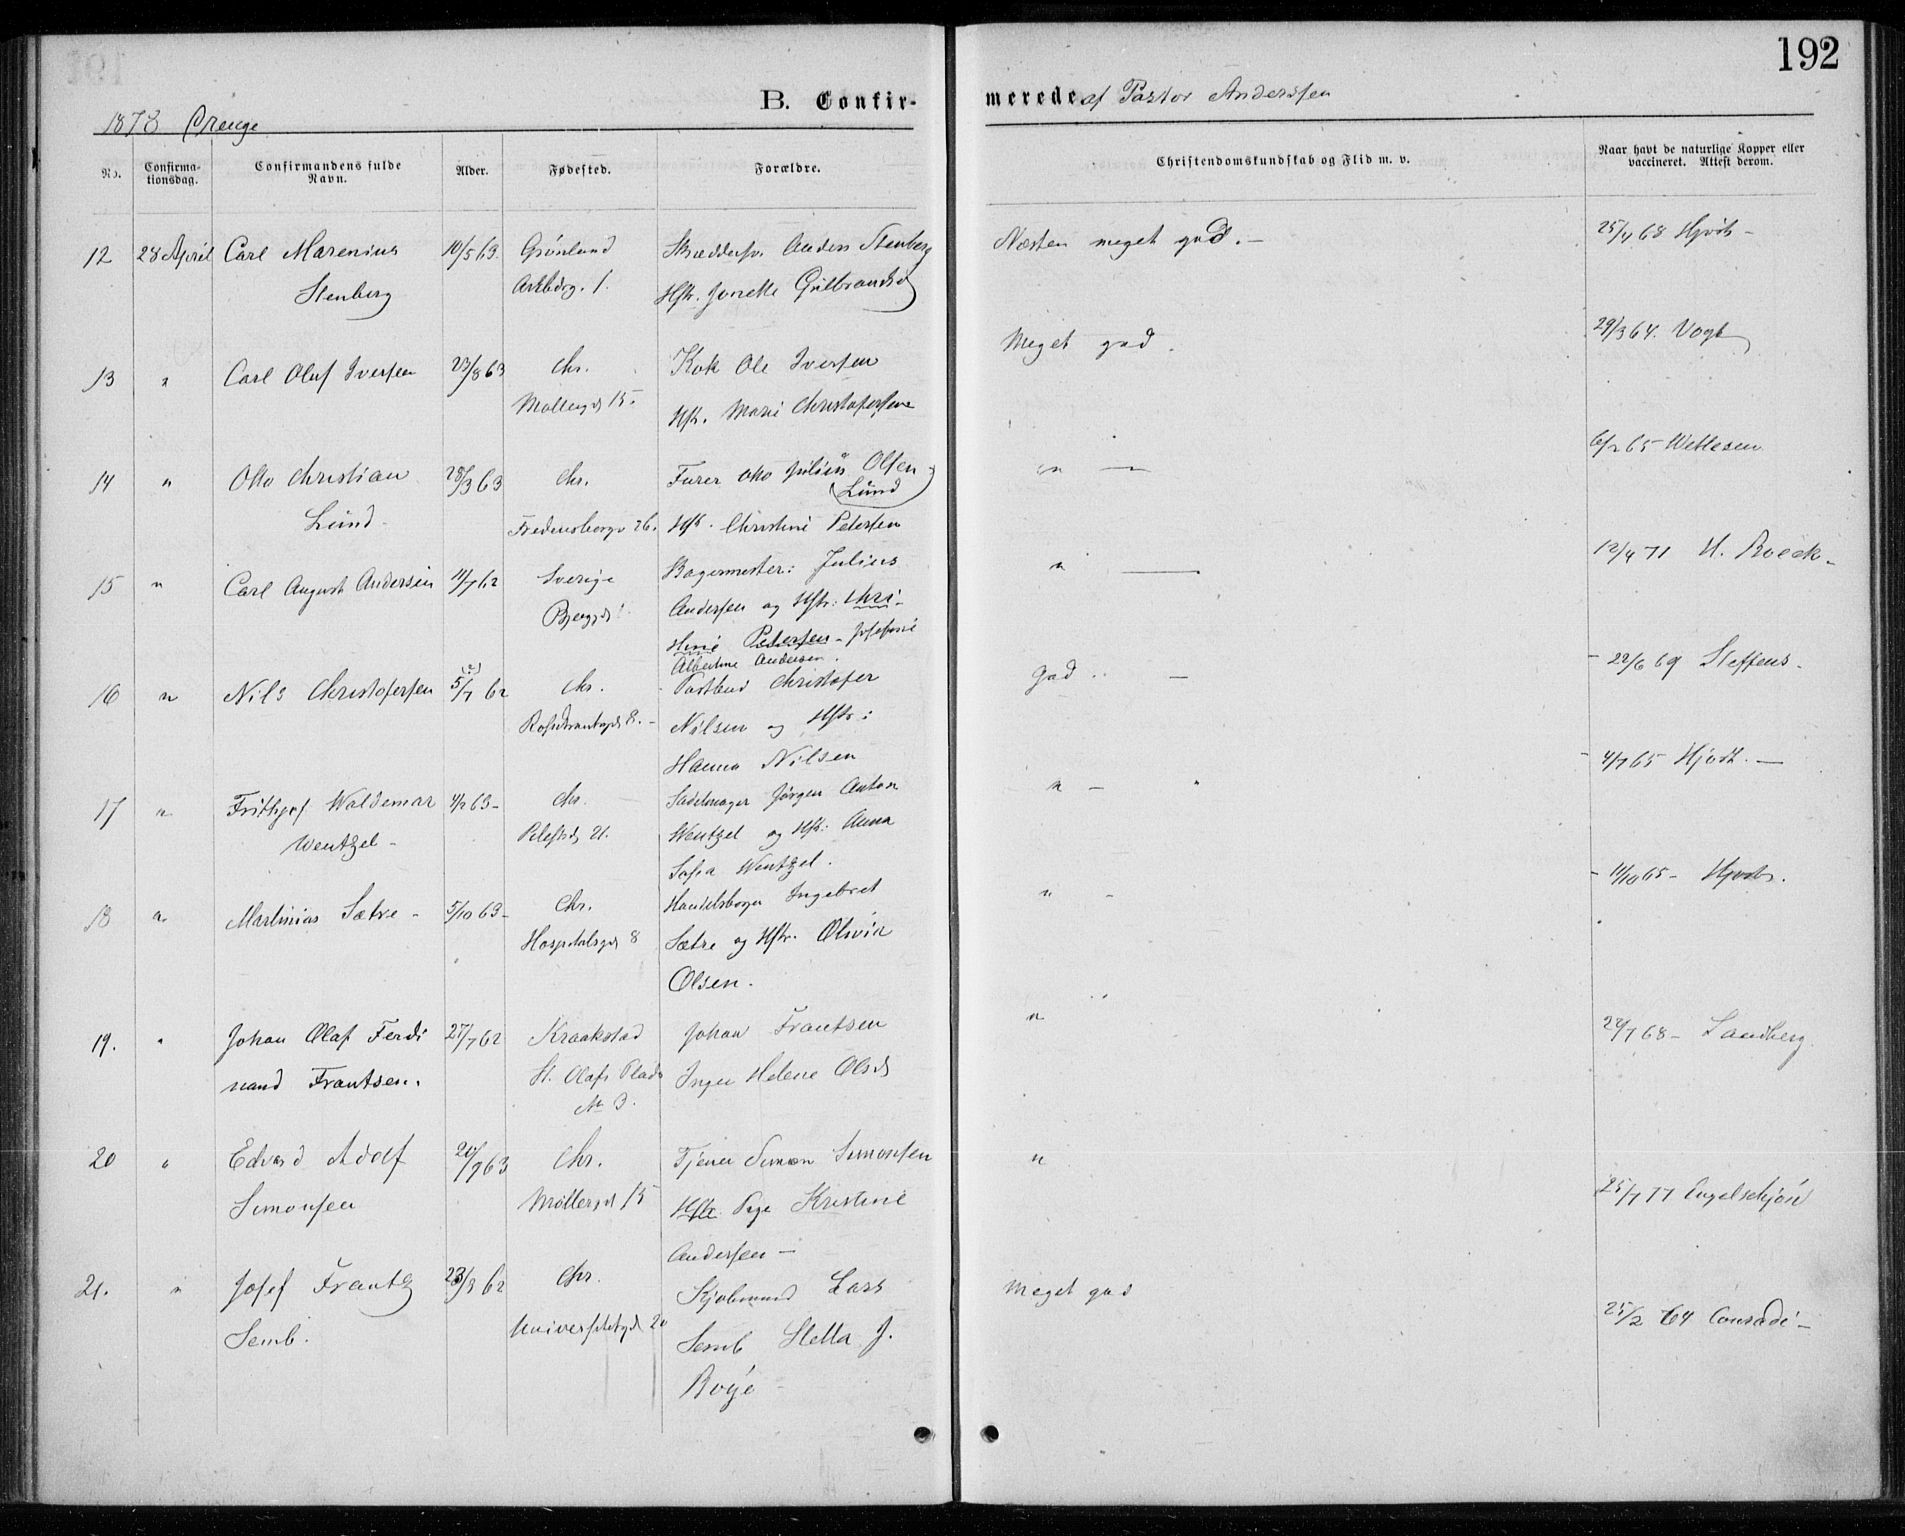 192
B. Confir-
merede af Pastor Anderssen
1878 Drenge
No.
Confirma-
tionsdag.
Confirmandens fulde
Navn.
Alder.
Fødested.
Forældre.
Christendomskundskab og Flid m. v.
Naar havt de naturlige Kopper eller
vaccineret. Attest derom.
12 28 April Carl Marenius 10/5 63. Grønland Skræddersv. Anders Stenberg Næsten meget god. - 25/4 68 Hjort -
Stenberg 1. Hstr. Jonette Gulbrandsd
13 " Carl Oluf Iversen 23/8 63 Chr. Kok Ole Iversen Meget god. 29/3 64. Vogt
Møllergd 15. Hstr. Marie Christofersen
14 " Otto Christian 28/3 63 Chr. Furer Otto Julius Olsen " — 6/2 65 Wettesen
(Lund)
Lund - Fredensborgv 26. Hst. Christine Petersen
15 " Carl August Andersen 11/7 62 Sverige Bagermester: Julius " — 12/4 71 H. Roeck -
Andersen og Hstr: Chri-
stine Petersen - Josefine
Albertine Andersen.
16 " Nils Christofersen 5/7 62 Chr. Postbud Christofer God. - 22/6 69 Steffens -
8. - Nilsen og Hstr:
Hanna Nilsen
17 " Frithjof Waldemar 4/2 63 - Chr. Sadelmager Jørgen Anton " - 4/7 65 Hjort. —
Wentzel - Pilestd 21. Wentzel og Hstr: Anna
Sofia Wentzel.
18 " Martinius Sætre - 5/10 63 - Chr. Handelsborger Ingebret " - 11/10 65 - Hjort.
Hospitalsgd 8 Sætre og Hstr. Olivia
Olsen.
19. " Johan Olaf Ferdi 27/7 62 Kraakstad Johan Frantsen " 22/7 68 - Sandberg.
nand Frantsen. St. Olafs Plads Inger Helene Olsd
No 3.
20 " Edvard Adolf 20/9 63 Chr. Tjener Simon Simonsen " 25/7 77 Engelschjøn
Simonsen Møllergd 15 Hstr. Kristine
Andersen —
21. " Josef Frantz 23/3 62 Chr. Kjøbmand Lars Meget god 25/2 64 Conradi -
Semb. Universitetsgd 20 Semb Stella J.
Boye